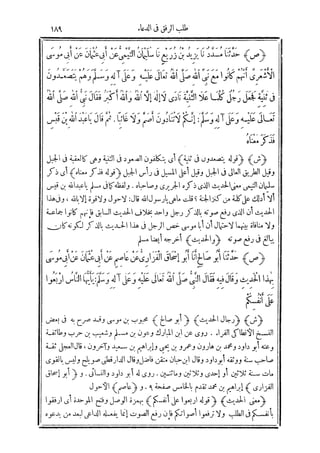 طلب الرفق فى الدعاء ١٨٩
﴿ص﴾ حَدَّثَنَا مُسَدَّدٌ نَا يَزِيدُ بْنُ زُرَيْعٍ نَا سُلَيْمَانُ التَّيْمِىُّ عَنْ أَبِى عُثْمَانَ عَنْ أَبِى مُوسَى
الْأَشْعَرِىِّ أَنَّهُمْ كَانُوا مَعَ نَبِىِّ اللهِ صَلَّى اللهُ تَعَالَى عَلَيْهِ وَعَلَى آلِهِ وَسَلَّمَ وَهُمْ يَتَصَعَّدُونَ
فِى ثَنِيَّةٍ فَجَعَلَ رَجُلٌ كُلَّمَا عَلَا الثَّنِيَّةَ نَادَى لَا إِلَهَ إِلَّا اللهُ وَاللهُ أَكْبَرُ فَقَالَ نَبِىُّ اللهِ صَلَّى اللهُ
تَعَالَى عَلَيْهِ وَعَلَى آلِهِ وَسَلَّمَ: إِنَّكُمْ لَا تُنَادُونَ أَصَمَّ وَلَا غَائِبًا. ثُمَّ قَالَ يَا عَبْدَ اللهِ بْنَ قَيْسٍ
فَذَكَرَ مَعْنَاهُ
﴿ش﴾ ﴿قوله يتصعدون فى ثنية﴾ أى يتكلفون الصعود فى الثنية وهى كالعقبة فى الجبل
وقيل الطريق العالى فى الجبل وقيل أعلى المسيل فى رأس الجبل ﴿قوله فذكر معناه﴾ أى ذكر
سليمان التيمى معنى الحديث الذى ذكره الجريرى وصاحباه. ولفظه كما فى مسلم يا عبد الله بن قيس
ألا أدلك على كلمة من كنز الجنة؟ قلت ماهى يا رسول الله قال: لا حول ولا قوة إلا بالله، وفى هذا
الحديث أن الذى رفع صوته بالذكر رجل واحد بخلاف الحديث السابق فإنهم كانوا جماعة
ولا منافاة بينهما لاحتمال أن أبا موسى خص الرجل فى هذا الحديث بالذكر لكونه كان
يبالغ فى رفع صوته ﴿والحديث﴾ أخرجه أيضا مسلم
﴿ص﴾ حَدَّثَنَا أَبُو صَالِحٍ أَنَا أَبُو إِسْحَاقَ الْفَزَارِىُّ عَنْ عَاصِمٍ عَنْ أَبِى عُثْمَانَ عَنْ أَبِى مُوسَى
بِهَذَا الْحَدِيثِ وَقَالَ فِيهِ فَقَالَ النَّبِىُّ صَلَّى اللهُ تَعَالَى عَلَيْهِ وَعَلَى آلِهِ وَسَلَّمَ: يَا أَيُّهَا النَّاسُ ارْبَعُوا
عَلَى أَنْفُسِكُمْ
﴿ش﴾ ﴿رجال الحديث﴾ ﴿أبو صالح﴾ محبوب بن موسى وقد صرح به فى بعض
النسخ الأنطاكى الفراء. روى عن ابن المبارك وعون بن مسلم وشعيب بن حرب وطائفة
وعنه أبو داود ومحمد بن هارون وعمرو بن يحيى وإبراهيم بن سعيد وآخرون، قال العجلى ثقة
صاحب سنة ووثقه أبو داود وقال ابن حبان متقن فاضل وقال الدارقطنى صويلح وليس بالقوى
مات سنة ثلاثين أو إحدى وثلاثين ومائتين. روى له أبو داود والنسائى. و ﴿أبو إسحاق
الفزارى﴾ إبراهيم بن محمد تقدم بالخامس صفحة ٩. و ﴿عاصم﴾ الأحول
﴿معنى الحديث﴾ ﴿قوله اربعوا على أنفسكم﴾ بهمزة الوصل وفتح الموحدة أى ارفقوا
بأنفسكم فى الطلب ولا ترفعوا أصواتكم فإن رفع الصوت إنما يفعله الداعى لبعد من يدعوه